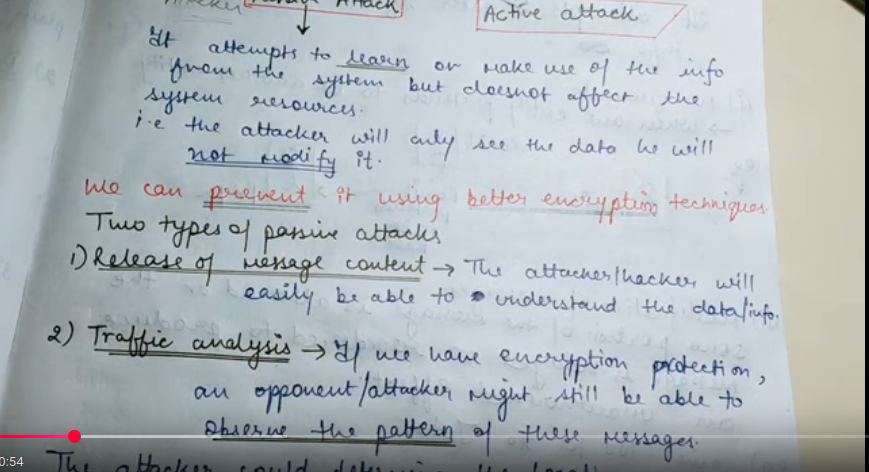 Attack
Active attack
It attempts to learn or make use of the info
from the system but doesnot affect the
system resources.
i.e the attacker will only see the data he will
not modify it.
We can prevent it using better encryption techniques.
Two types of passive attacks
1) Release of message content → The attacker/hacker will
easily be able to understand the data/info.
2) Traffic analysis → If we have encryption protection,
an opponent/attacker might still be able to
observe the pattern of these messages.
0:54
The attacker could determine the